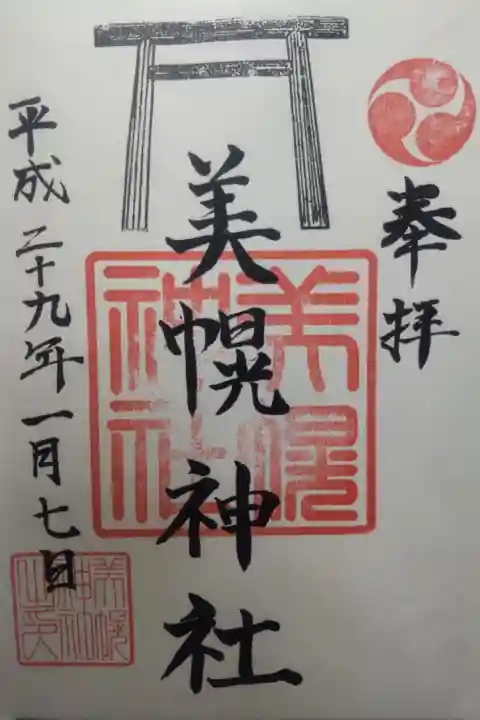 奉拝
美幌神社
平成二十九年一月七日
美幌神社
美幌神社之印